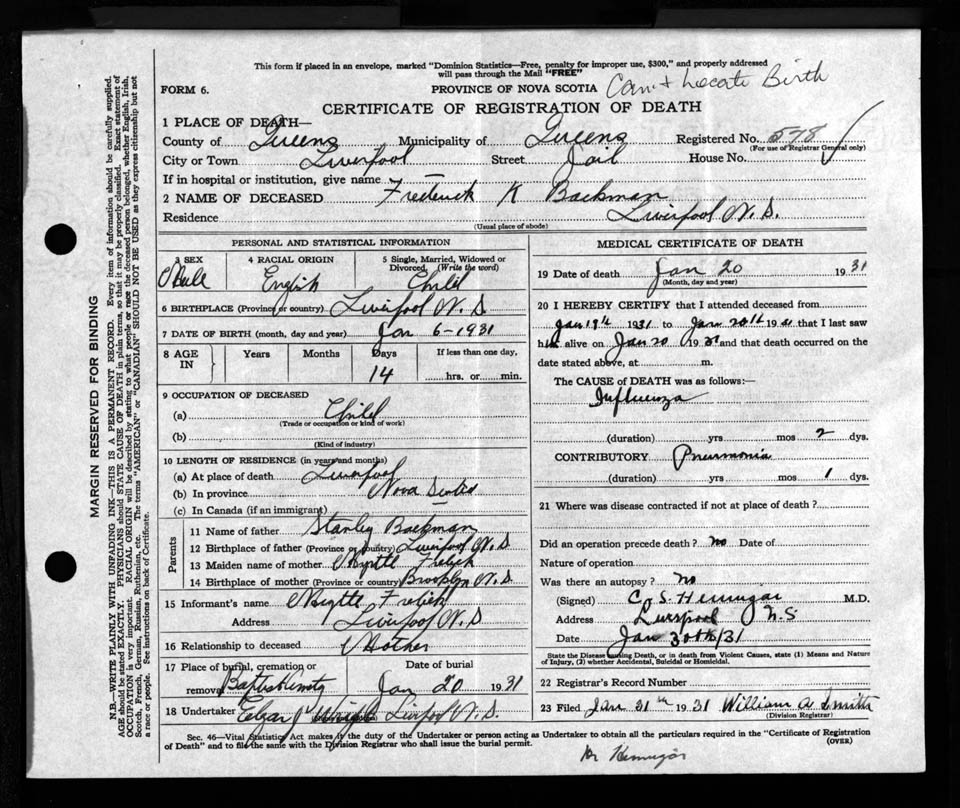 This form if placed in an envelope, marked "Dominion Statistics—Free, penalty for improper use, $300," and properly addressed
will pass through the Mail "FREE"
FORM 6.
PROVINCE OF NOVA SCOTIA
Can + Locate Birth
CERTIFICATE OF REGISTRATION OF DEATH
1 PLACE OF DEATH—
County of Queens Municipality of Queens Registered No. 578
(For use of Registrar General only)
City or Town Liverpool Street Jail House No.
If in hospital or institution, give name
2 NAME OF DECEASED Frederick K Backman
Residence Liverpool N.S.
(Usual place of abode)
PERSONAL AND STATISTICAL INFORMATION
3 SEX 4 RACIAL ORIGIN 5 Single, Married, Widowed or
Divorced (Write the word)
Male English Child
6 BIRTHPLACE (Province or country) Liverpool N S
7 DATE OF BIRTH (month, day and year) Jan 6-1931
8 AGE IN Years Months Days If less than one day,
14 hrs. or min.
9 OCCUPATION OF DECEASED
(a) Child
(Trade or occupation or kind of work)
(b)
(Kind of industry)
10 LENGTH OF RESIDENCE (in years and months)
(a) At place of death Liverpool
(b) In province Nova Scotia
(c) In Canada (if an immigrant)
Parents
11 Name of father Stanley Backman
12 Birthplace of father (Province or country) Liverpool N.S
13 Maiden name of mother Myrtle
14 Birthplace of mother (Province or country) Brooklyn N.S.
15 Informant's name Myrtle
Address Liverpool N.S
16 Relationship to deceased Mother
17 Place of burial, cremation or Date of burial
removal Baptist Jan 20 1931
18 Undertaker Liverpool N.S.
MEDICAL CERTIFICATE OF DEATH
19 Date of death Jan 20 1931
(Month, day and year)
20 I HEREBY CERTIFY that I attended deceased from
Jan 19th 1931 to Jan 20th 1931 that I last saw
him alive on Jan 20 1931 and that death occurred on the
date stated above, at m.
The CAUSE OF DEATH was as follows:
Influenza
(duration) yrs mos 2 dys.
CONTRIBUTORY Pneumonia
(duration) yrs. mos 1 dys.
21 Where was disease contracted if not at place of death?
Did an operation precede death? no Date of
Nature of operation
Was there an autopsy? no
(Signed) M.D.
Address Liverpool N.S
Date Jan 30th/31
State the Disease causing Death, or in death from Violent Causes, state (1) Means and Nature
of Injury, (2) whether Accidental, Suicidal or Homicidal.
22 Registrar's Record Number
23 Filed Jan 31st 1931 William A Smith
(Division Registrar)
Sec. 46—Vital Statistics Act makes it the duty of the Undertaker or person acting as Undertaker to obtain all the particulars required in the "Certificate of Registration
of Death" and to file the same with the Division Registrar who shall issue the burial permit.
(OVER)
Dr
MARGIN RESERVED FOR BINDING
N.B.—WRITE PLAINLY WITH UNFADING INK—THIS IS A PERMANENT RECORD. Every item of information should be carefully supplied.
AGE should be stated EXACTLY. PHYSICIANS should STATE CAUSE OF DEATH in plain terms, so that it may be properly classified. Exact statement of
OCCUPATION is very important. RACIAL ORIGIN will be described by stating to what people or race the deceased person belonged, whether English, Irish,
Scotch, French, German, Russian, Ruthenian, etc. The terms "AMERICAN" or "CANADIAN" SHOULD NOT BE USED as they express citizenship but not
a race or people. See instructions on back of Certificate.